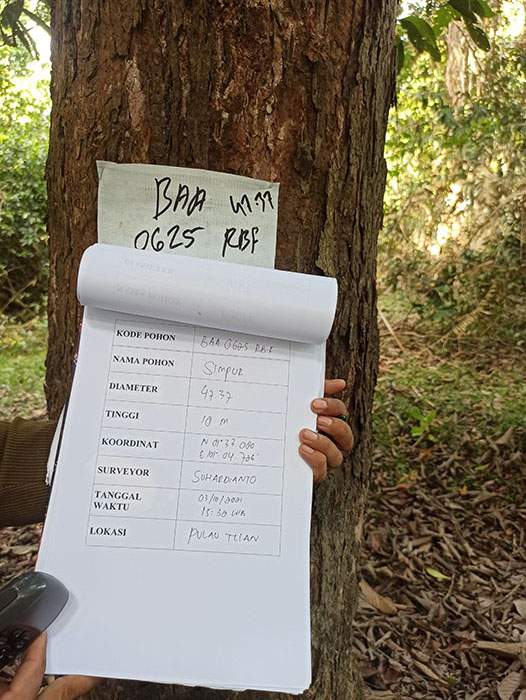 BAA 47.37
0625 RBF
KODE POHON BAA 0625 RBF
NAMA POHON SIMPUR
DIAMETER 47 37
TINGGI 10 M
KOORDINAT N 01° 37. 080
E 101° 04. 726
SURVEYOR SUHARDIANTO
TANGGAL 03/10/2021
WAKTU 15:30 WIB
LOKASI PULAU TILAN